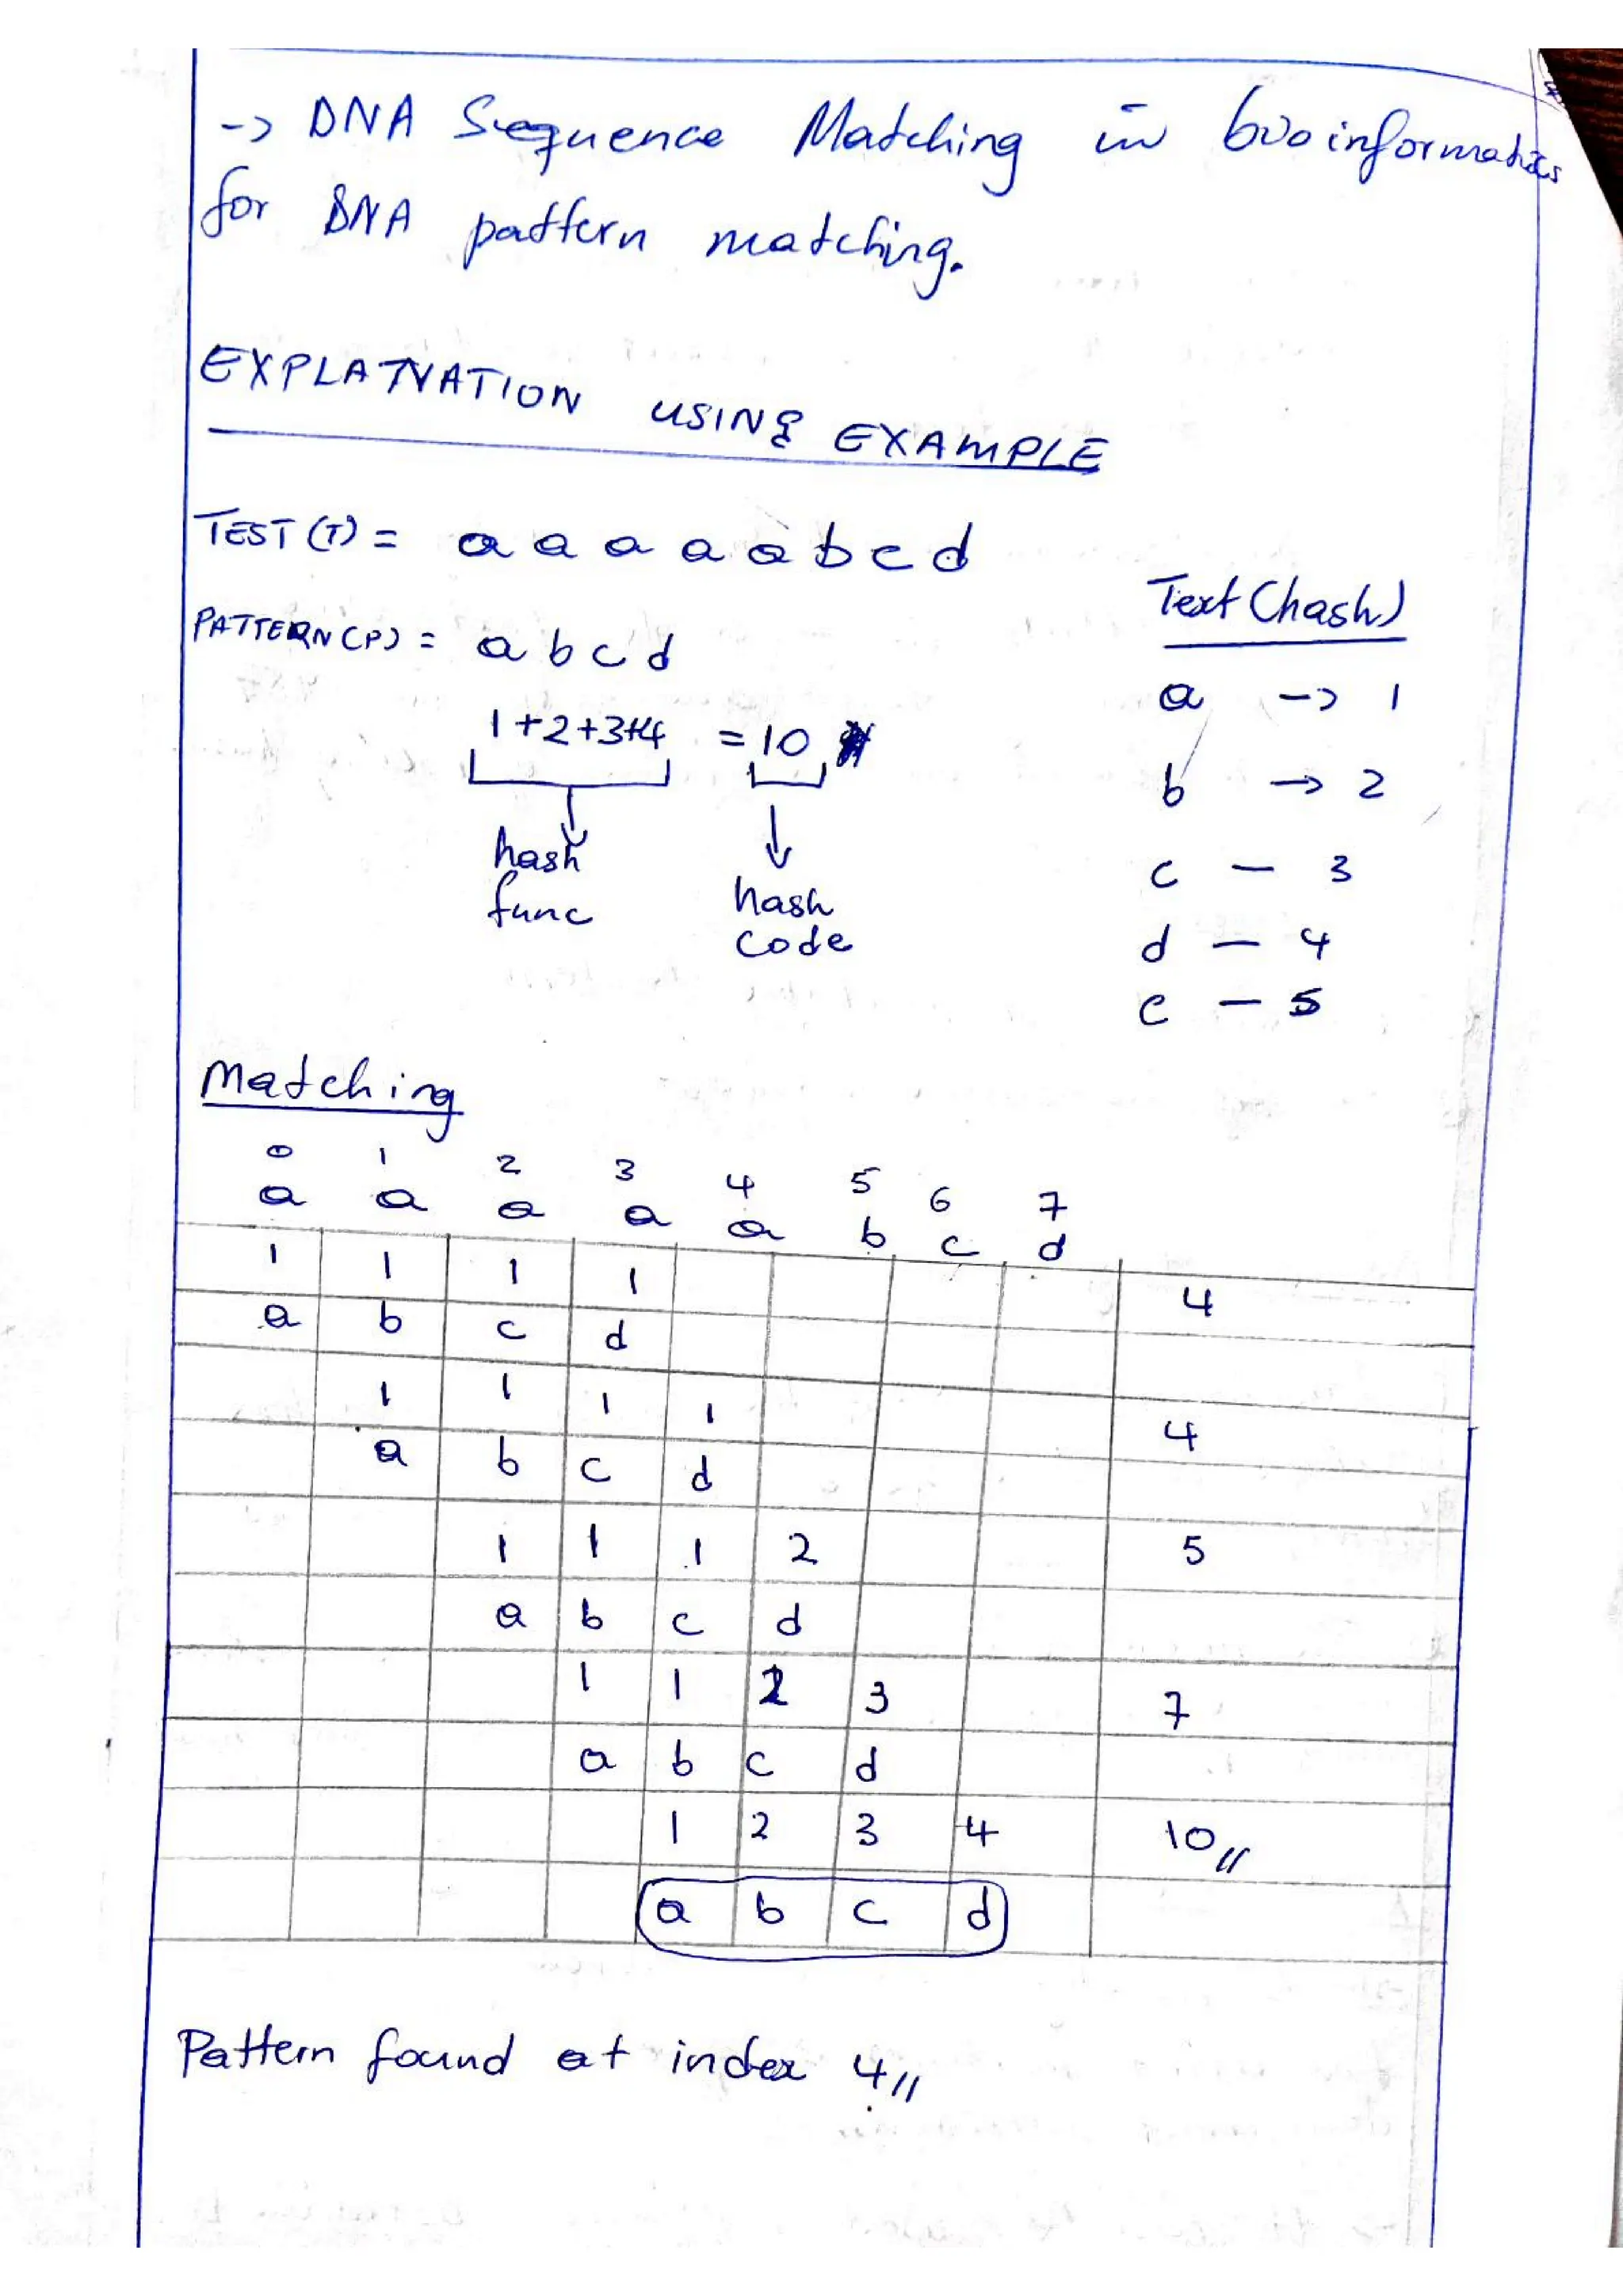 -> DNA Sequence Matching in bioinformatics
for DNA pattern matching.
EXPLANATION USING EXAMPLE
TEST (T) = a a a a a b c d
PATTERN (P) = a b c d
1+2+3+4 = 10
hash func
hash code
Text (hash)
a -> 1
b -> 2
c - 3
d - 4
e - 5
Matching
0 1 2 3 4 5 6 7
a a a a a b c d
1 1 1 1 4
a b c d
1 1 1 1 4
a b c d
1 1 1 2 5
a b c d
1 1 2 3 7
a b c d
1 2 3 4 10//
a b c d
Pattern found at index 4//